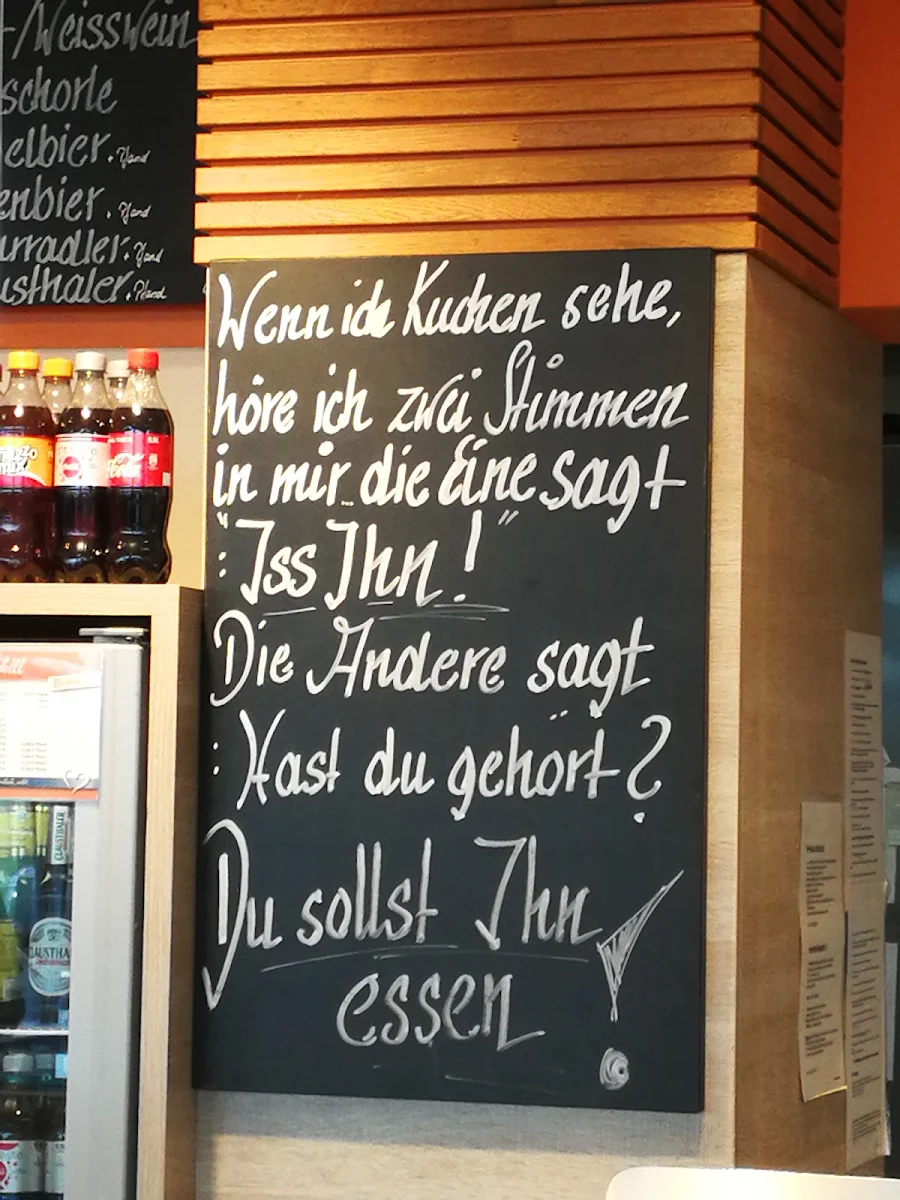 -/Weisswein
schorle
elbier + Pfand
enbier + Pfand
urradler + Pfand
usthaler + Pfand
Wenn ich Kuchen sehe,
höre ich zwei Stimmen
in mir die Eine sagt
: "Iss Ihn!"
Die Andere sagt
: Hast du gehört?
Du sollst Ihn
essen!
mezzo
mix
Coca-Cola
CLAUSTHALER